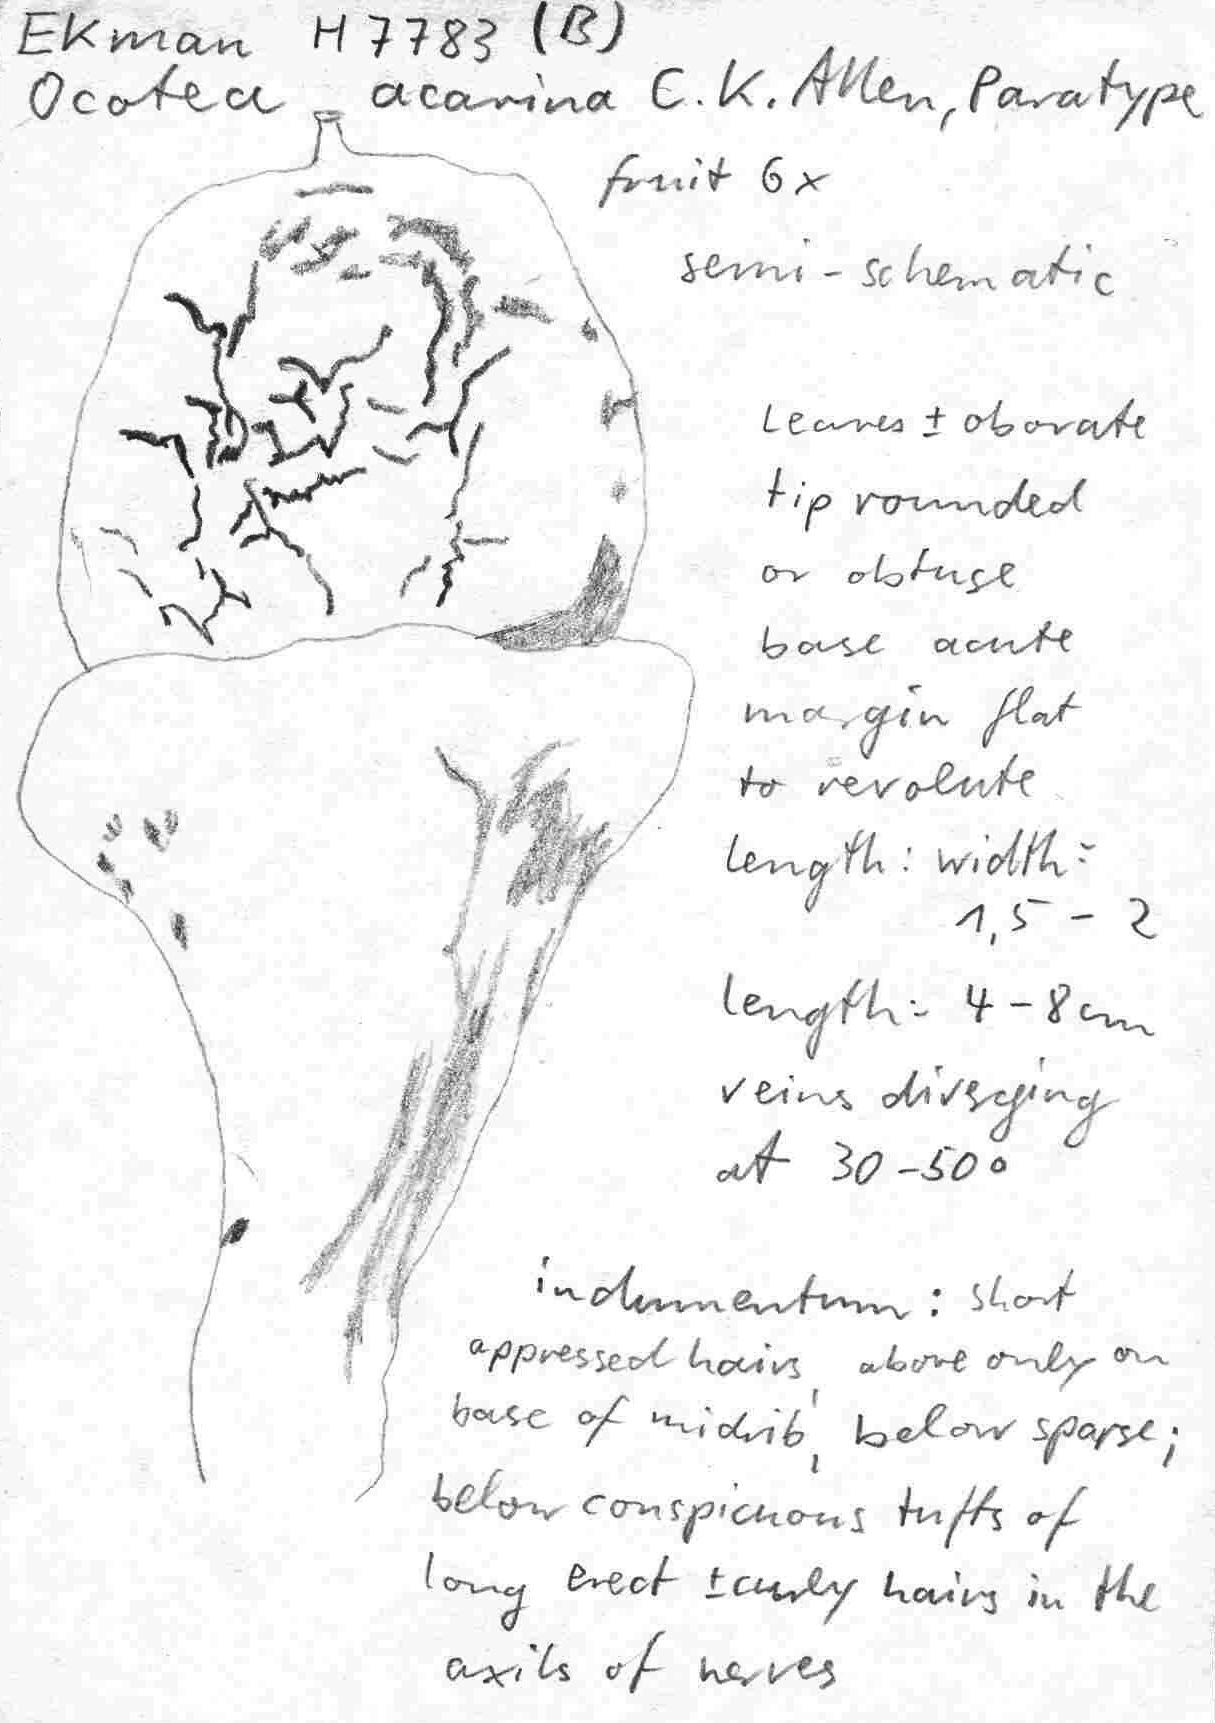 Ekman H7783 (B)
Ocotea acarina C.K. Allen, Paratype
fruit 6x
semi-schematic
leaves ± obovate
tip rounded
or obtuse
base acute
margin flat
to revolute
length: width:
1,5 - 2
length: 4-8cm
veins diverging
at 30-50°
indumentum: short
appressed hairs, above only on
base of midrib, below sparse;
below conspicuous tufts of
long erect ± curly hairs in the
axils of nerves